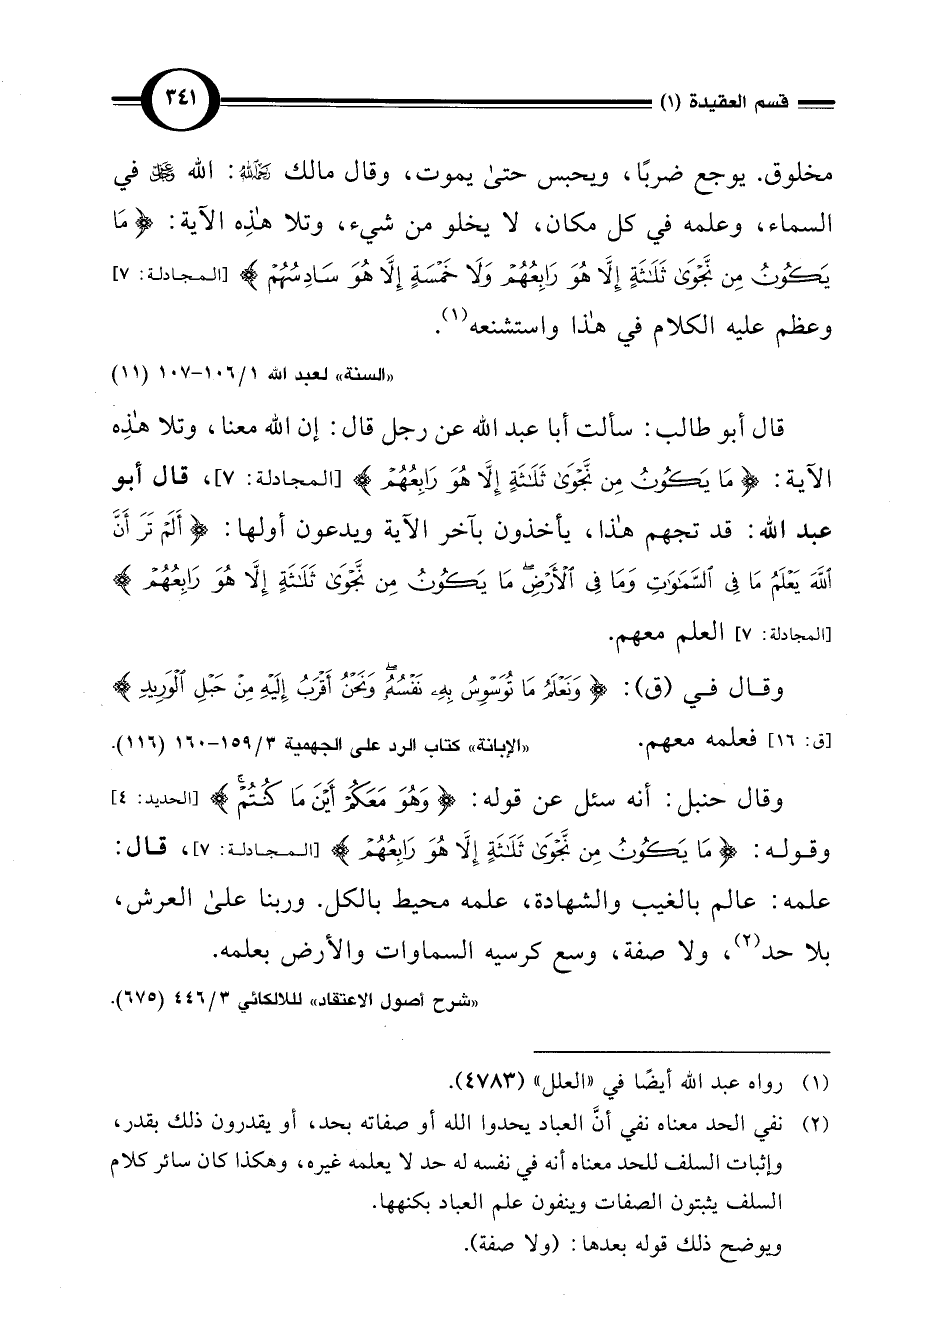 قسم العقيدة (١)
٣٤١
مخلوق. يوجع ضربًا، ويحبس حتىٰ يموت، وقال مالك رحمه الله: الله عز وجل في
السماء، وعلمه في كل مكان، لا يخلو من شيء، وتلا هـٰذِه الآية: ﴿مَا
يَكُونُ مِن نَّجْوَىٰ ثَلَـٰثَةٍ إِلَّا هُوَ رَابِعُهُمْ وَلَا خَمْسَةٍ إِلَّا هُوَ سَادِسُهُمْ﴾ [المجادلة: ٧]
وعظم عليه الكلام في هـٰذا واستشنعه(١).
«السنة» لعبد الله ١/ ١٠٦-١٠٧ (١١)
قال أبو طالب: سألت أبا عبد الله عن رجل قال: إن الله معنا، وتلا هـٰذِه
الآية: ﴿مَا يَكُونُ مِن نَّجْوَىٰ ثَلَـٰثَةٍ إِلَّا هُوَ رَابِعُهُمْ﴾ [المجادلة: ٧]، قال أبو
عبد الله: قد تجهم هـٰذا، يأخذون بآخر الآية ويدعون أولها: ﴿أَلَمْ تَرَ أَنَّ
ٱللَّهَ يَعْلَمُ مَا فِى ٱلسَّمَـٰوَٰتِ وَمَا فِى ٱلْأَرْضِۖ مَا يَكُونُ مِن نَّجْوَىٰ ثَلَـٰثَةٍ إِلَّا هُوَ رَابِعُهُمْ﴾
[المجادلة: ٧] العلم معهم.
وقال في (ق): ﴿وَنَعْلَمُ مَا تُوَسْوِسُ بِهِۦ نَفْسُهُۥۖ وَنَحْنُ أَقْرَبُ إِلَيْهِ مِنْ حَبْلِ ٱلْوَرِيدِ﴾
[ق: ١٦] فعلمه معهم. «الإبانة» كتاب الرد على الجهمية ٣/ ١٥٩-١٦٠ (١١٦).
وقال حنبل: أنه سئل عن قوله: ﴿وَهُوَ مَعَكُمْ أَيْنَ مَا كُنتُمْۚ﴾ [الحديد: ٤]
وقوله: ﴿مَا يَكُونُ مِن نَّجْوَىٰ ثَلَـٰثَةٍ إِلَّا هُوَ رَابِعُهُمْ﴾ [المجادلة: ٧]، قال:
علمه: عالم بالغيب والشهادة، علمه محيط بالكل. وربنا علىٰ العرش،
بلا حد(٢)، ولا صفة، وسع كرسيه السماوات والأرض بعلمه.
«شرح أصول الاعتقاد» للالكائي ٣/ ٤٤٦ (٦٧٥).
(١) رواه عبد الله أيضًا في «العلل» (٤٧٨٣).
(٢) نفي الحد معناه نفي أنَّ العباد يحدوا الله أو صفاته بحد، أو يقدرون ذلك بقدر،
وإثبات السلف للحد معناه أنه في نفسه له حد لا يعلمه غيره، وهكذا كان سائر كلام
السلف يثبتون الصفات وينفون علم العباد بكنهها.
ويوضح ذلك قوله بعدها: (ولا صفة).